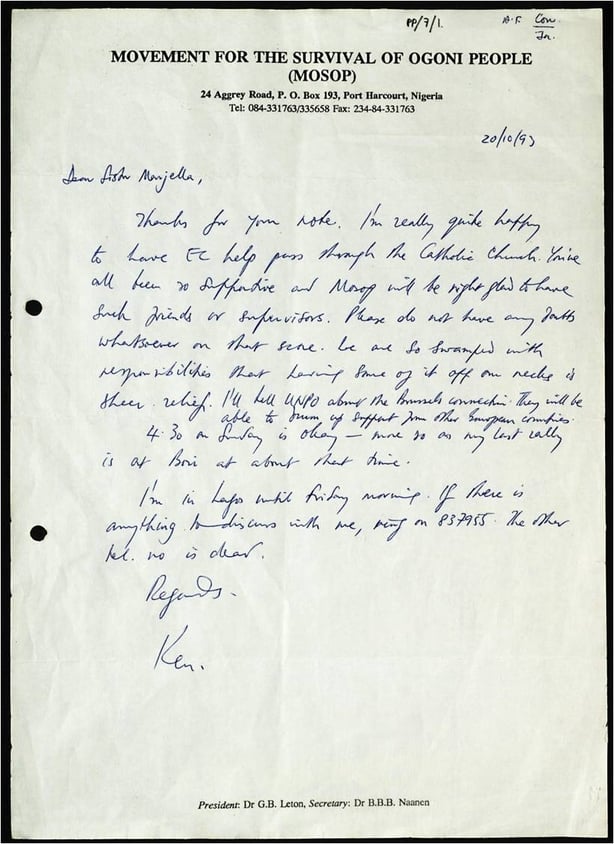 PP/7/1.
A.F. Con.
MOVEMENT FOR THE SURVIVAL OF OGONI PEOPLE
(MOSOP)
24 Aggrey Road, P. O. Box 193, Port Harcourt, Nigeria
Tel: 084-331763/335658 Fax: 234-84-331763
20/10/93
Dear Sister Marjella,
Thanks for your note. I'm really quite happy
to have EC help pass through the Catholic Church. You've
all been so supportive and Mosop will be right glad to have
such friends or supervisors. Please do not have any doubts
whatsoever on that score. We are so swamped with
responsibilities that having some of it off our necks is
sheer relief. I'll tell UNPO about the Brussels connection. They will be
able to drum up support from other European countries.
4.30 on Sunday is okay — more so as my last rally
is at Bori at about that time.
I'm in Lagos until Friday morning. If there is
anything to discuss with me, ring on 837955. The other
tel. no is dead.
Regards.
Ken.
President: Dr G.B. Leton, Secretary: Dr B.B.B. Naanen